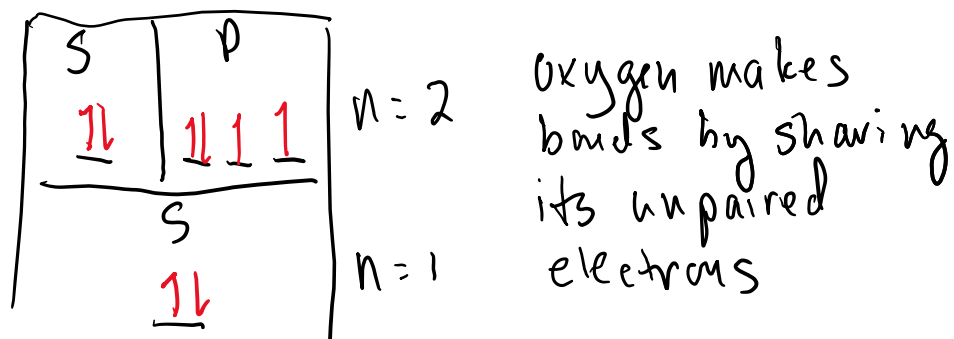 S P
n = 2
S
n = 1
oxygen makes
bonds by sharing
its unpaired
electrons